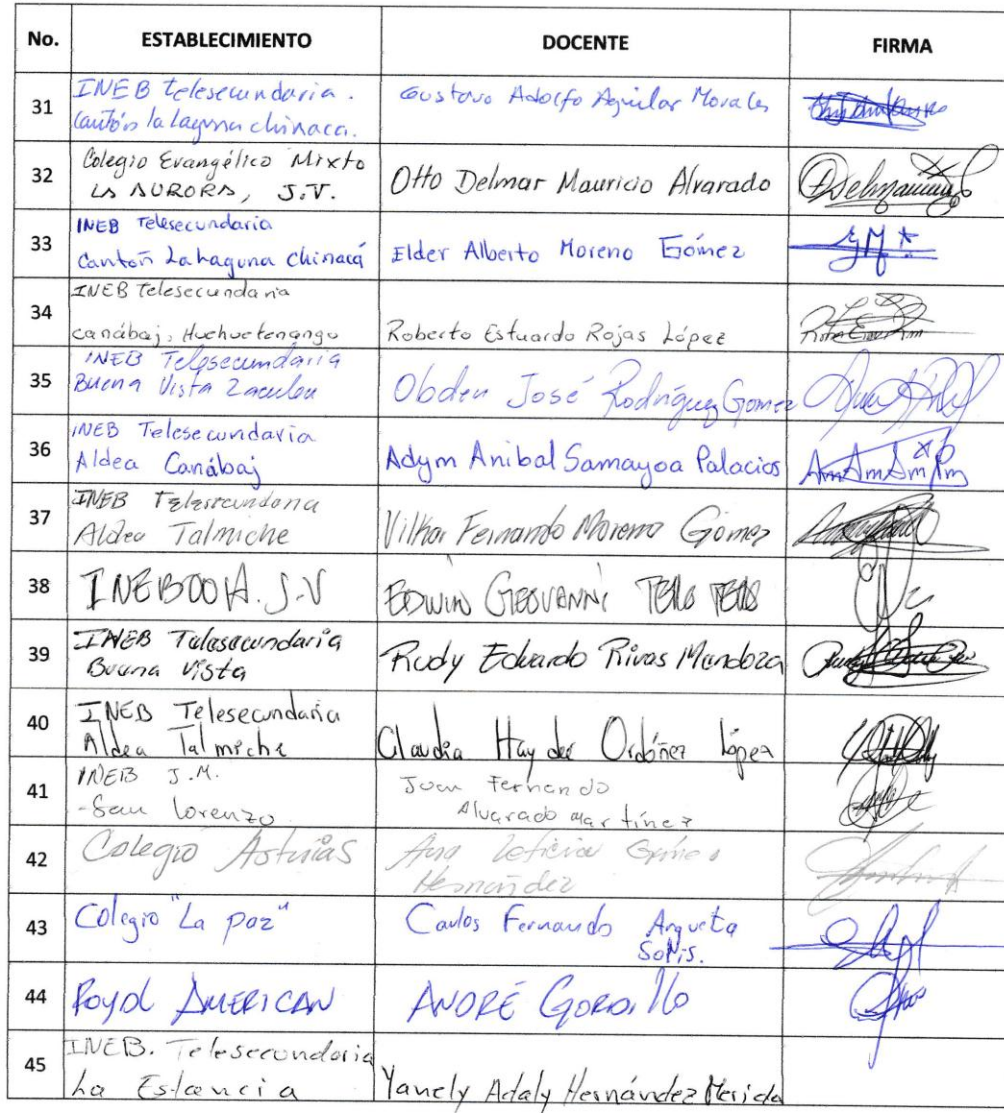 No. ESTABLECIMIENTO DOCENTE FIRMA
31 INEB telesecundaria. Gustavo Adolfo Aguilar Morales
Cantón la laguna chinaca.
32 Colegio Evangélico Mixto Otto Delmar Mauricio Alvarado
LA AURORA, J.V.
33 INEB Telesecundaria
Cantón La Laguna Chinacá Elder Alberto Moreno Gómez
34 INEB Telesecundaria
canábaj, Huehuetenango Roberto Estuardo Rojas López
35 INEB Telesecundaria
Buena Vista Zaculeu Obden José Rodríguez Gomez
36 INEB Telesecundaria
Aldea Canábaj Adym Anibal Samayoa Palacios
37 INEB Telesecundaria
Aldea Talmiche Fernando Moreno Gómez
38 J.V EDWIN GEOVANNI TELLO TELLO
39 INEB Telesecundaria
Buena Vista Rudy Eduardo Rivas Mendoza
40 INEB Telesecundaria
Aldea Talmiche Claudia Haydee Ordóñez López
41 INEB J.M. Juan Fernando
-San Lorenzo Alvarado Martínez
42 Colegio Asturias Ana Leticia
Hernández
43 Colegio "La paz" Carlos Fernando Argueta
Solís.
44 Royal AMERICAN ANDRÉ GORDILLO
45 INEB. Telesecundaria
La Estancia Yanely Adaly Hernández Merida